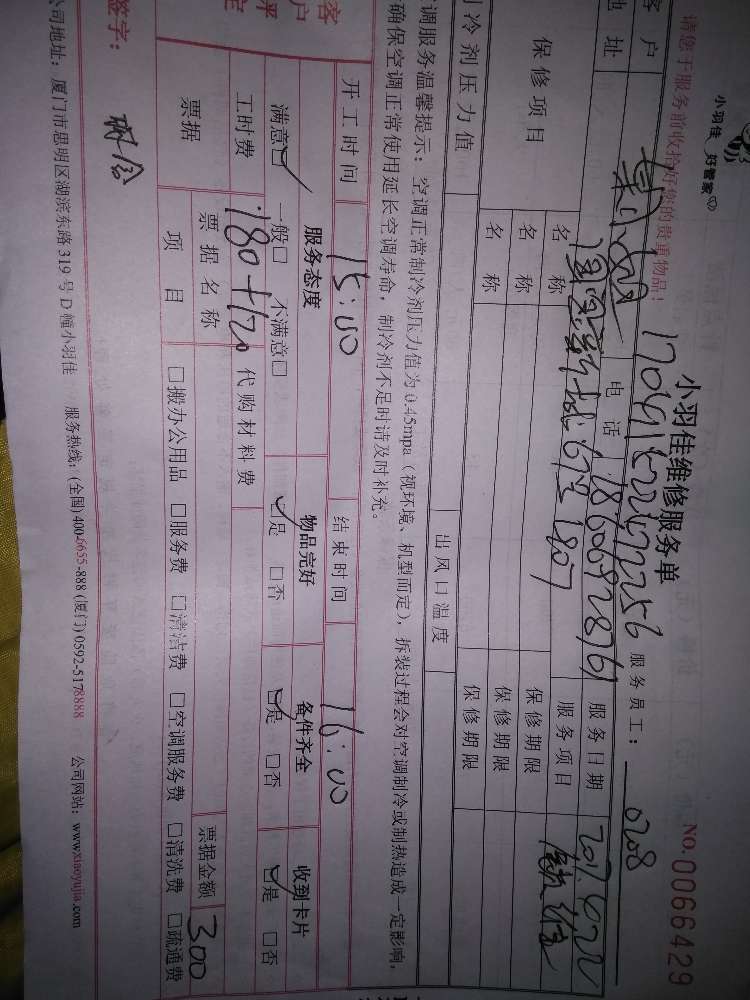 小羽佳 好管家
请您于服务前收拾好您的贵重物品!
小羽佳维修服务单
NO. 0066429
服务员工: 0208
客户 电话 服务日期 2017.6.22
地址 1807 服务项目
保修项目 名称 保修期限
名称 保修期限
名称 保修期限
制冷剂压力值 出风口温度
调服务温馨提示:空调正常制冷剂压力值为0.45mpa(视环境、机型而定),拆装过程会对空调制冷或制热造成一定影响,
确保空调正常使用延长空调寿命,制冷剂不足时请及时补充。
开工时间 15:00 结束时间 16:00
客户 服务态度 物品完好 备件齐全 收到卡片
评定 满意□ 一般□ 不满意□ 是 □否 是 □否 是 □否
工时费 180+120 代购材料费
票据 票据名称 票据金额 300
项目 □搬办公用品 □服务费 □清洁费 □空调服务费 □清洗费 □疏通费
签字:
公司地址:厦门市思明区湖滨东路319号D幢小羽佳 服务热线:(全国)400-6655-888 (厦门)0592-5178888 公司网站:www.xiaoyujia.com